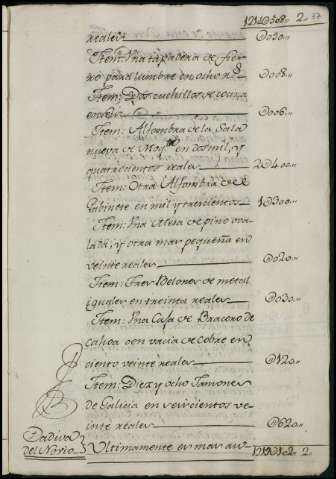 37
reales
Item: Una tapadera de fier=
ro para lumbre en ocho r.s @008..
Item: Dos cuchillos de cocina
en seis @006..
Item: Alfombra de la Sala
nueva de en dos mil, y
quatrocientos reales 2@400..
Item: Otra Alfombra de el
Gabinete en mil y trescientos 1@300..
Item: Una Mesa de pino ova
lada, y otra mas pequeña en
veinte reales @020..
Item: Tres Velones de metal
iguales en treinta reales @030..
Item: Una Caja de Brasero de
caħoa con vacia de cobre en
ciento veinte reales @120..
Item: Diez y ocho Jamones
de Galicia en seiscientos ve
inte reales @620..
Dadiva
del Novio Ultimamente en mas au